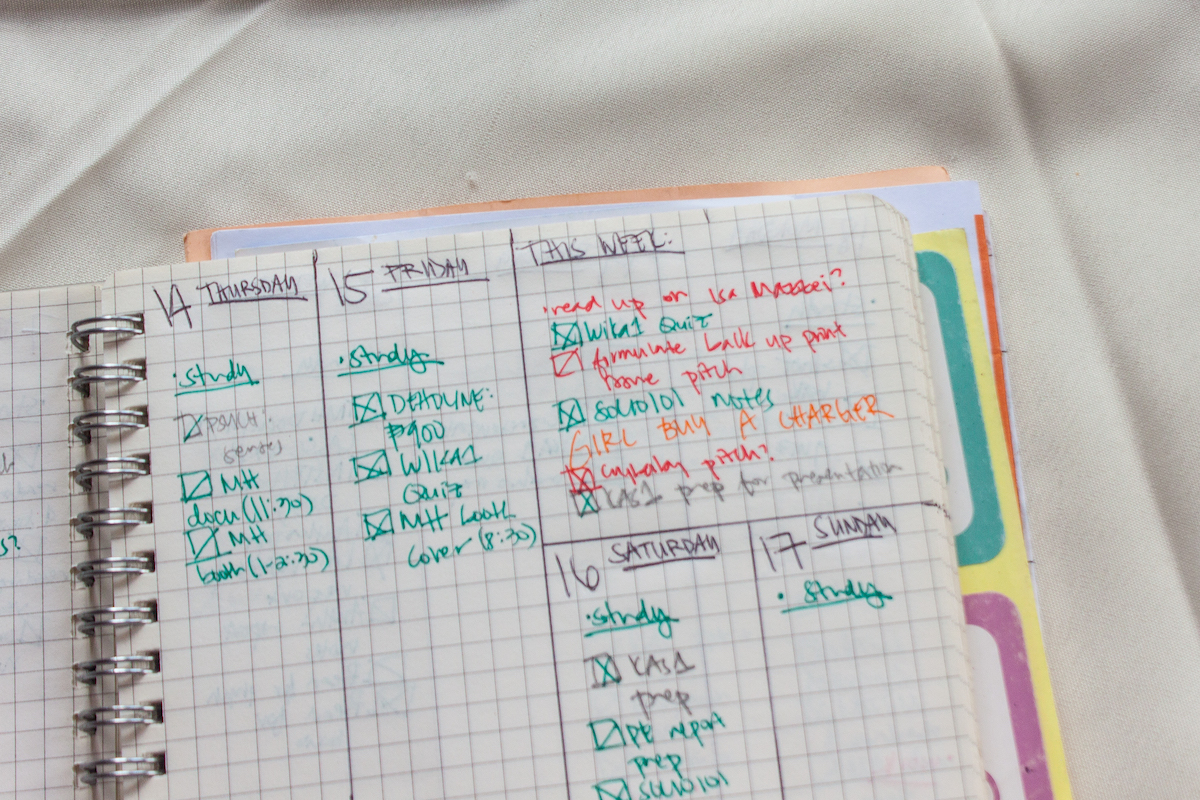 14 THURSDAY
• study
PSYCH:
senses
MH
docu (11:30)
MH
booth (1-2:30)
15 FRIDAY
• study
DEADLINE:
₱900
WIKA1
QUIZ
MH booth
cover (8:30)
THIS WEEK:
• read up on Isa
Wika1 Quiz
formulate back up print
pitch
socio101 notes
GIRL BUY A CHARGER
pitch?
KAS1 prep for presentation
16 SATURDAY
• study
KAS1
prep
PE report
prep
socio101
17 SUNDAY
• study
s?